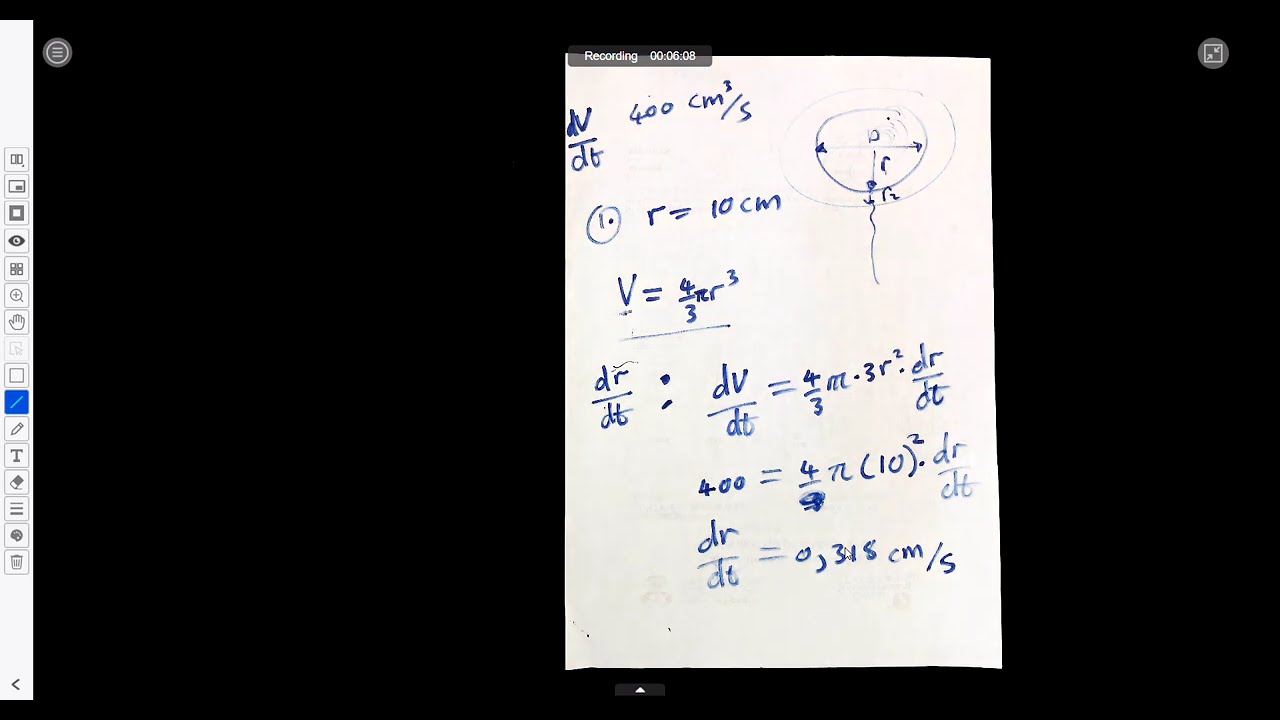 Recording 00:06:08
dV/dt 400 cm³/s
D
r
r₂
①. r = 10 cm
V = 4/3 πr³
dr/dt : dV/dt = 4/3 π · 3r² · dr/dt
400 = 4 π (10)² · dr/dt
dr/dt = 0,318 cm/s
T